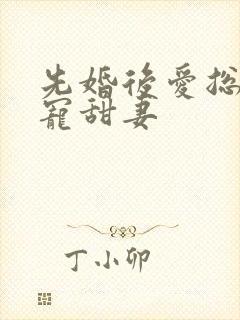 先婚後愛总
寵甜妻
丁小卯